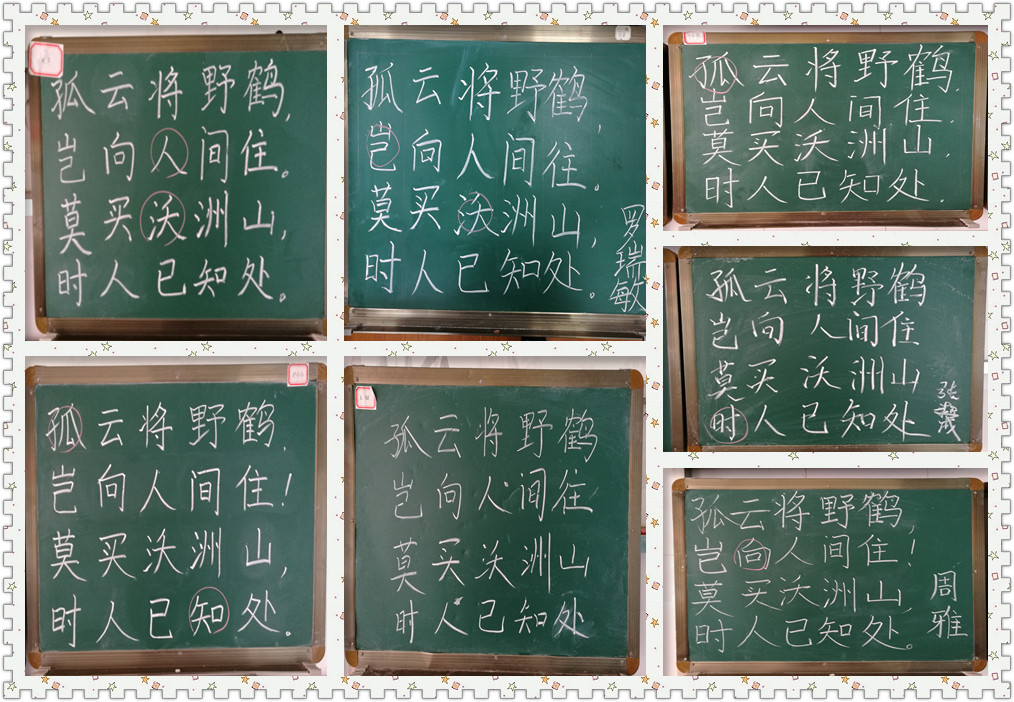 孤云将野鹤，
岂向人间住。
莫买沃洲山，
时人已知处。
孤云将野鹤，
岂向人间往。
莫买沃洲山，
时人已知处。
罗瑞敏
孤云将野鹤，
岂向人间住．
莫买沃洲山．
时人已知处．
孤云将野鹤
岂向人间住
莫买沃洲山
时人已知处
张
孤云将野鹤，
岂向人间住！
莫买沃洲山，
时人已知处。
孤云将野鹤
岂向人间往
莫买沃洲山
时人已知处
孤云将野鹤，
岂向人间住！
莫买沃洲山，
时人已知处。
周雅